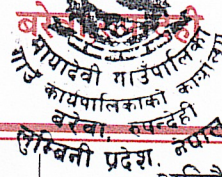 बरेवा, रुपन्देही
मायादेवी गाउँपालिका
गाउँ कार्यपालिकाको कार्यालय
बरेवा, रुपन्देही
लुम्बिनी प्रदेश, नेपाल